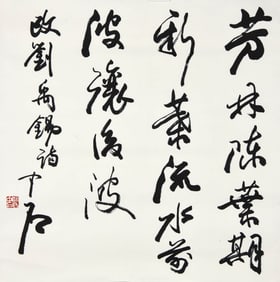 芳林陳葉期
新葉流水前
波讓後波
改劉禹錫詩 中石